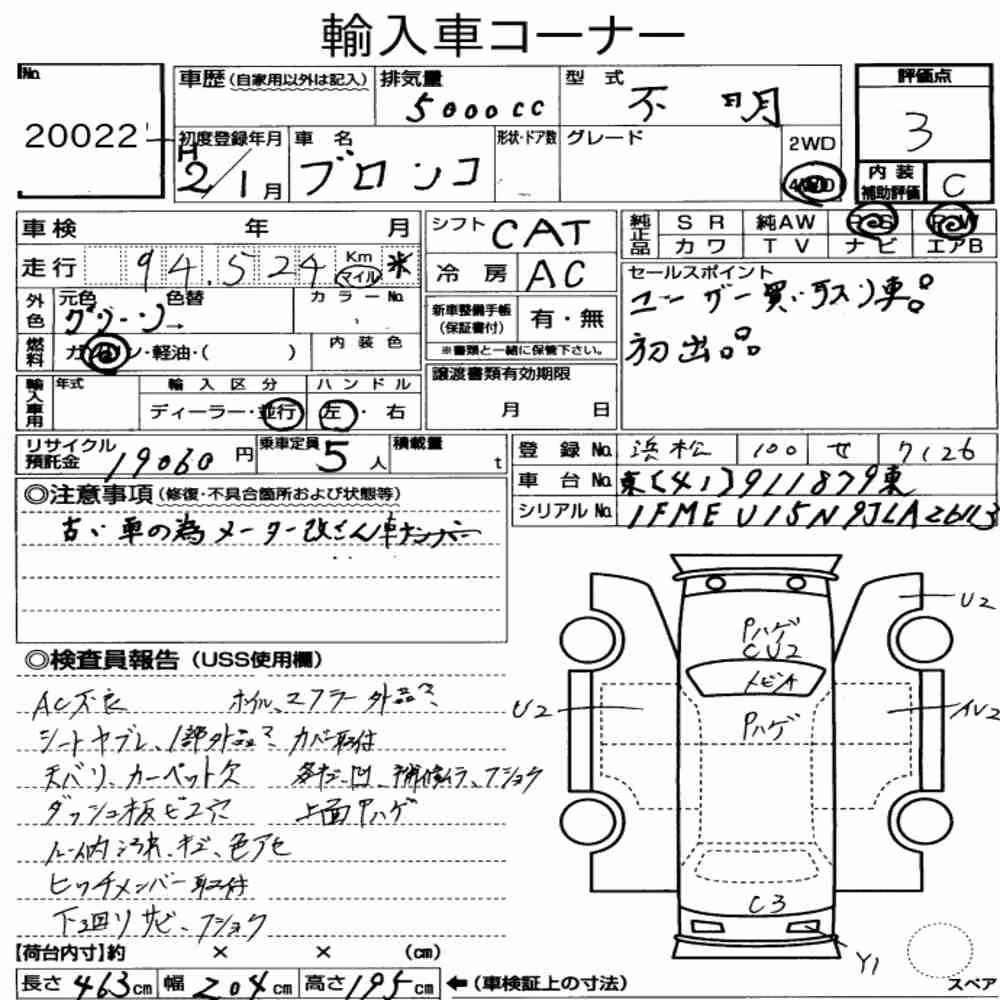 輸入車コーナー
No. 20022
車歴 (自家用以外は記入)
排気量 5000cc
型式 不明
評価点 3
初度登録年月 H2/1月
車名 ブロンコ
形状・ドア数
グレード
2WD
4WD
内装補助評価 C
車検 年 月
シフト CAT
純正品 SR 純AW PS PW
カワ TV ナビ エアB
走行 94,524 Km マイル 米
冷房 AC
セールスポイント
ユーザー買い取り車。
初出品。
外色 元色 グリーン→ 色替 カラーNo.
新車整備手帳(保証書付) 有・無
※書類と一緒に保管下さい。
燃料 ガソリン・軽油・( ) 内装色
輸入車用 年式 輸入区分 ハンドル
ディーラー・並行 左・右
譲渡書類有効期限
月 日
リサイクル預託金 19060円
乗車定員 5人
積載量 t
登録No. 浜松 100 せ 7126
車台No. 東[41]911879東
シリアルNo. 1FMEU15N9JLA26113
◎注意事項(修復・不具合箇所および状態等)
古い車の為メーター改ざん車ナンバー
◎検査員報告(USS使用欄)
AC不良 ホイル、マフラー外品?
シートヤブレ、1部外品? カバー取付
天バリ、カーペット欠 各だ凹、補修ムラ、フショク
ダッシュ板ビス穴 上面Pハゲ
ルーム内汚れ、キズ、色アセ
ヒッチメンバー取付
下回りサビ、フショク
U2
Pハゲ
CU2
トビA
U2
Pハゲ
AU2
C3
Y1
スペア
【荷台内寸】約 × × (cm)
長さ 463cm 幅 204cm 高さ 195cm ←(車検証上の寸法)